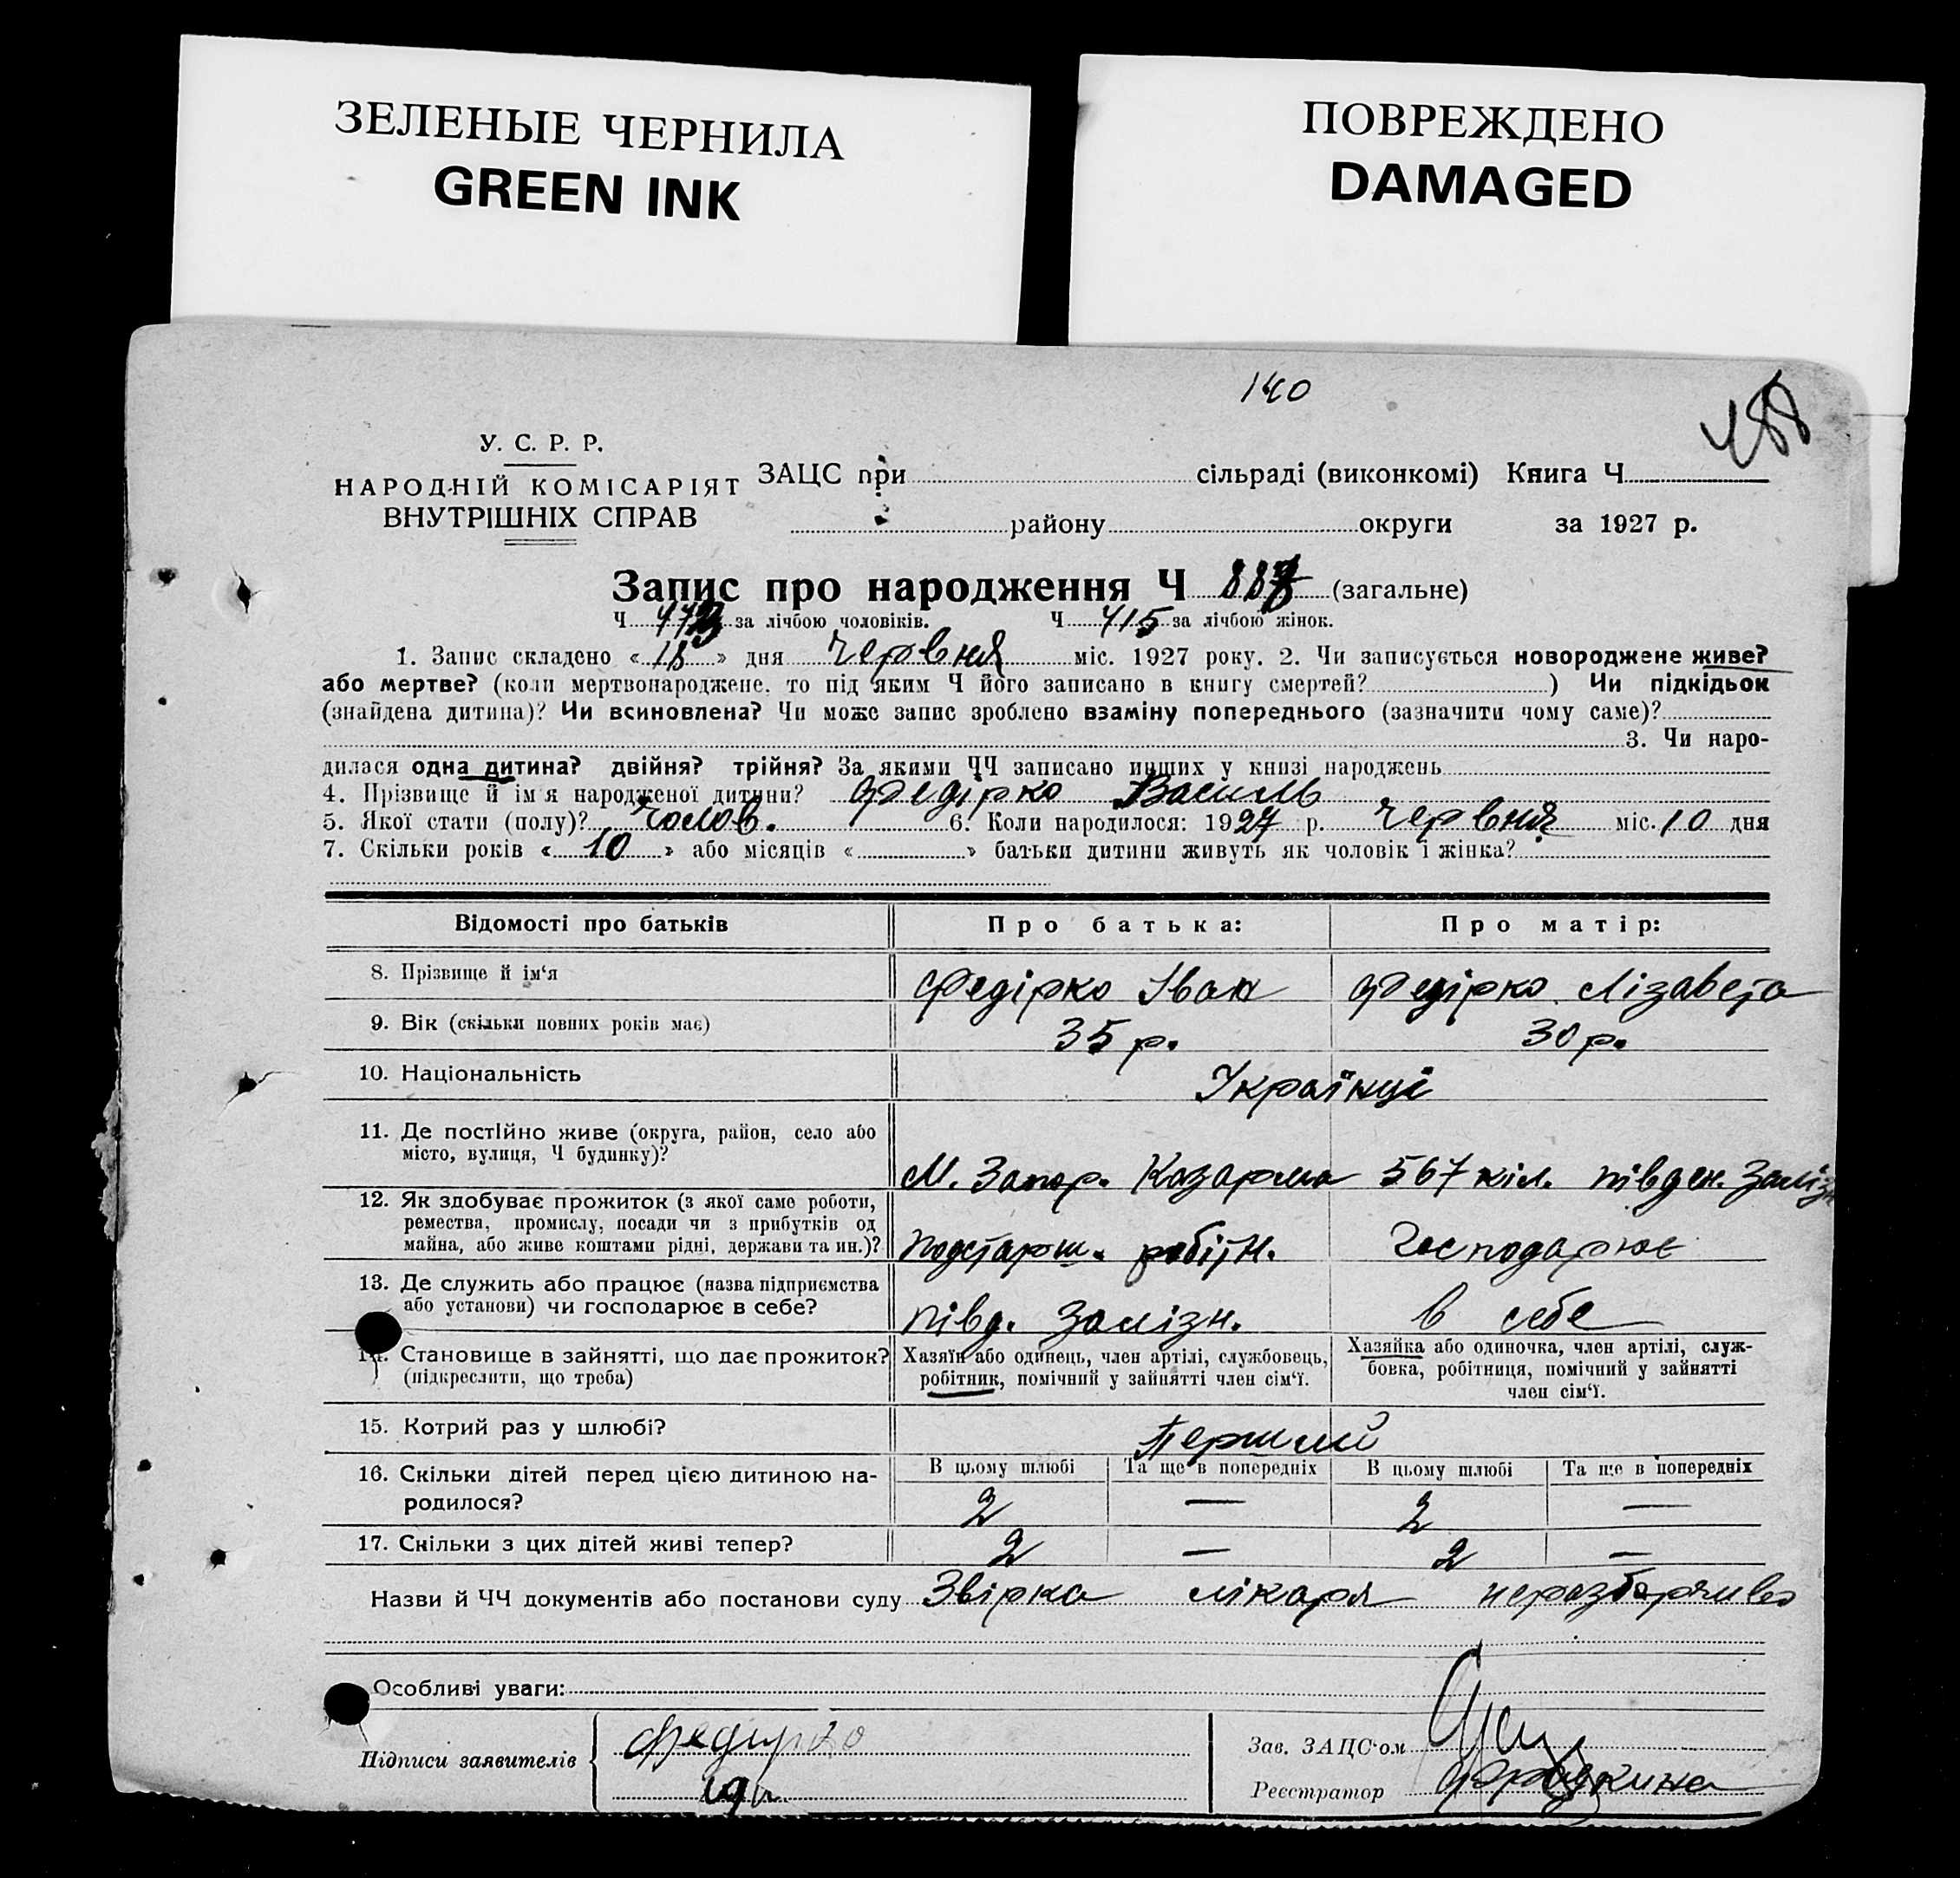 ЗЕЛЕНЫЕ ЧЕРНИЛА
GREEN INK
ПОВРЕЖДЕНО
DAMAGED
140
488
У. С. Р. Р.
НАРОДНІЙ КОМІСАРІЯТ
ВНУТРІШНІХ СПРАВ
ЗАЦС при сільраді (виконкомі) Книга Ч
району округи за 1927 р.
Запис про народження Ч (загальне)
Ч за лічбою чоловіків. Ч 415 за лічбою жінок.
1. Запис складено « 18 » дня червня міс. 1927 року. 2. Чи записується новороджене живе?
або мертве? (коли мертвонароджене, то під яким Ч його записано в книгу смертей? ) Чи підкідьок
(знайдена дитина)? Чи всиновлена? Чи може запис зроблено взаміну попереднього (зазначити чому саме)?
3. Чи наро-
дилася одна дитина? двійня? трійня? За якими ЧЧ записано инших у книзі народжень
4. Прізвище й ім'я народженої дитини? Федірко Василь
5. Якої стати (полу)? чолов. 6. Коли народилося: 1927 р. червня міс. 10 дня
7. Скільки років « 10 » або місяців « » батьки дитини живуть як чоловік і жінка?
Відомості про батьків Про батька: Про матір:
8. Прізвище й ім'я Федірко Іван Федірко Лізавета
9. Вік (скільки повних років має) 35 р. 30 р.
10. Національність Українці
11. Де постійно живе (округа, район, село або
місто, вулиця, Ч будинку)?
М. Запор. Казарма 567 кіл. півден. Залізн
12. Як здобуває прожиток (з якої саме роботи,
ремества, промислу, посади чи з прибутків од
майна, або живе коштами рідні, держави та ин.)?
подстарш. робітн. Господарює
13. Де служить або працює (назва підприємства
або установи) чи господарює в себе?
півд. Залізн. в себе
14. Становище в зайнятті, що дає прожиток?
(підкреслити, що треба)
Хазяїн або одинець, член артілі, службовець,
робітник, помічний у зайнятті член сім'ї.
Хазяйка або одиночка, член артілі, служ-
бовка, робітниця, помічний у зайнятті
член сім'ї.
15. Котрий раз у шлюбі? Перший
16. Скільки дітей перед цією дитиною на-
родилося?
В цьому шлюбі Та ще в попередніх В цьому шлюбі Та ще в попередніх
2 — 2 —
17. Скільки з цих дітей живі тепер? 2 — 2 —
Назви й ЧЧ документів або постанови суду Звірка лікаря неразборчиво
Особливі уваги:
Підписи заявителів Федирко
Зав. ЗАЦС'ом
Реєстратор